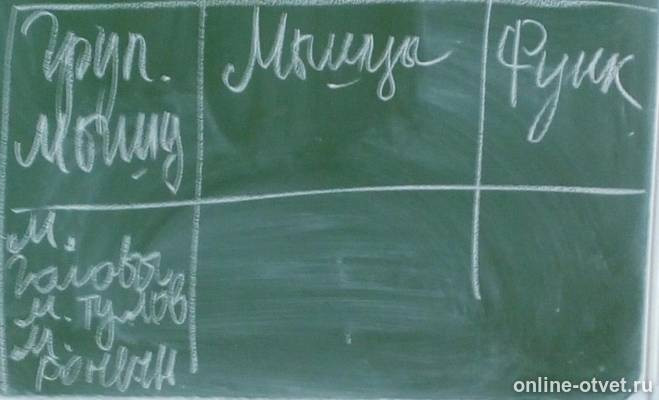 Груп. Мышцы Функ
мышц
М.
головы
м. тулов
М.
конечн
online-otvet.ru